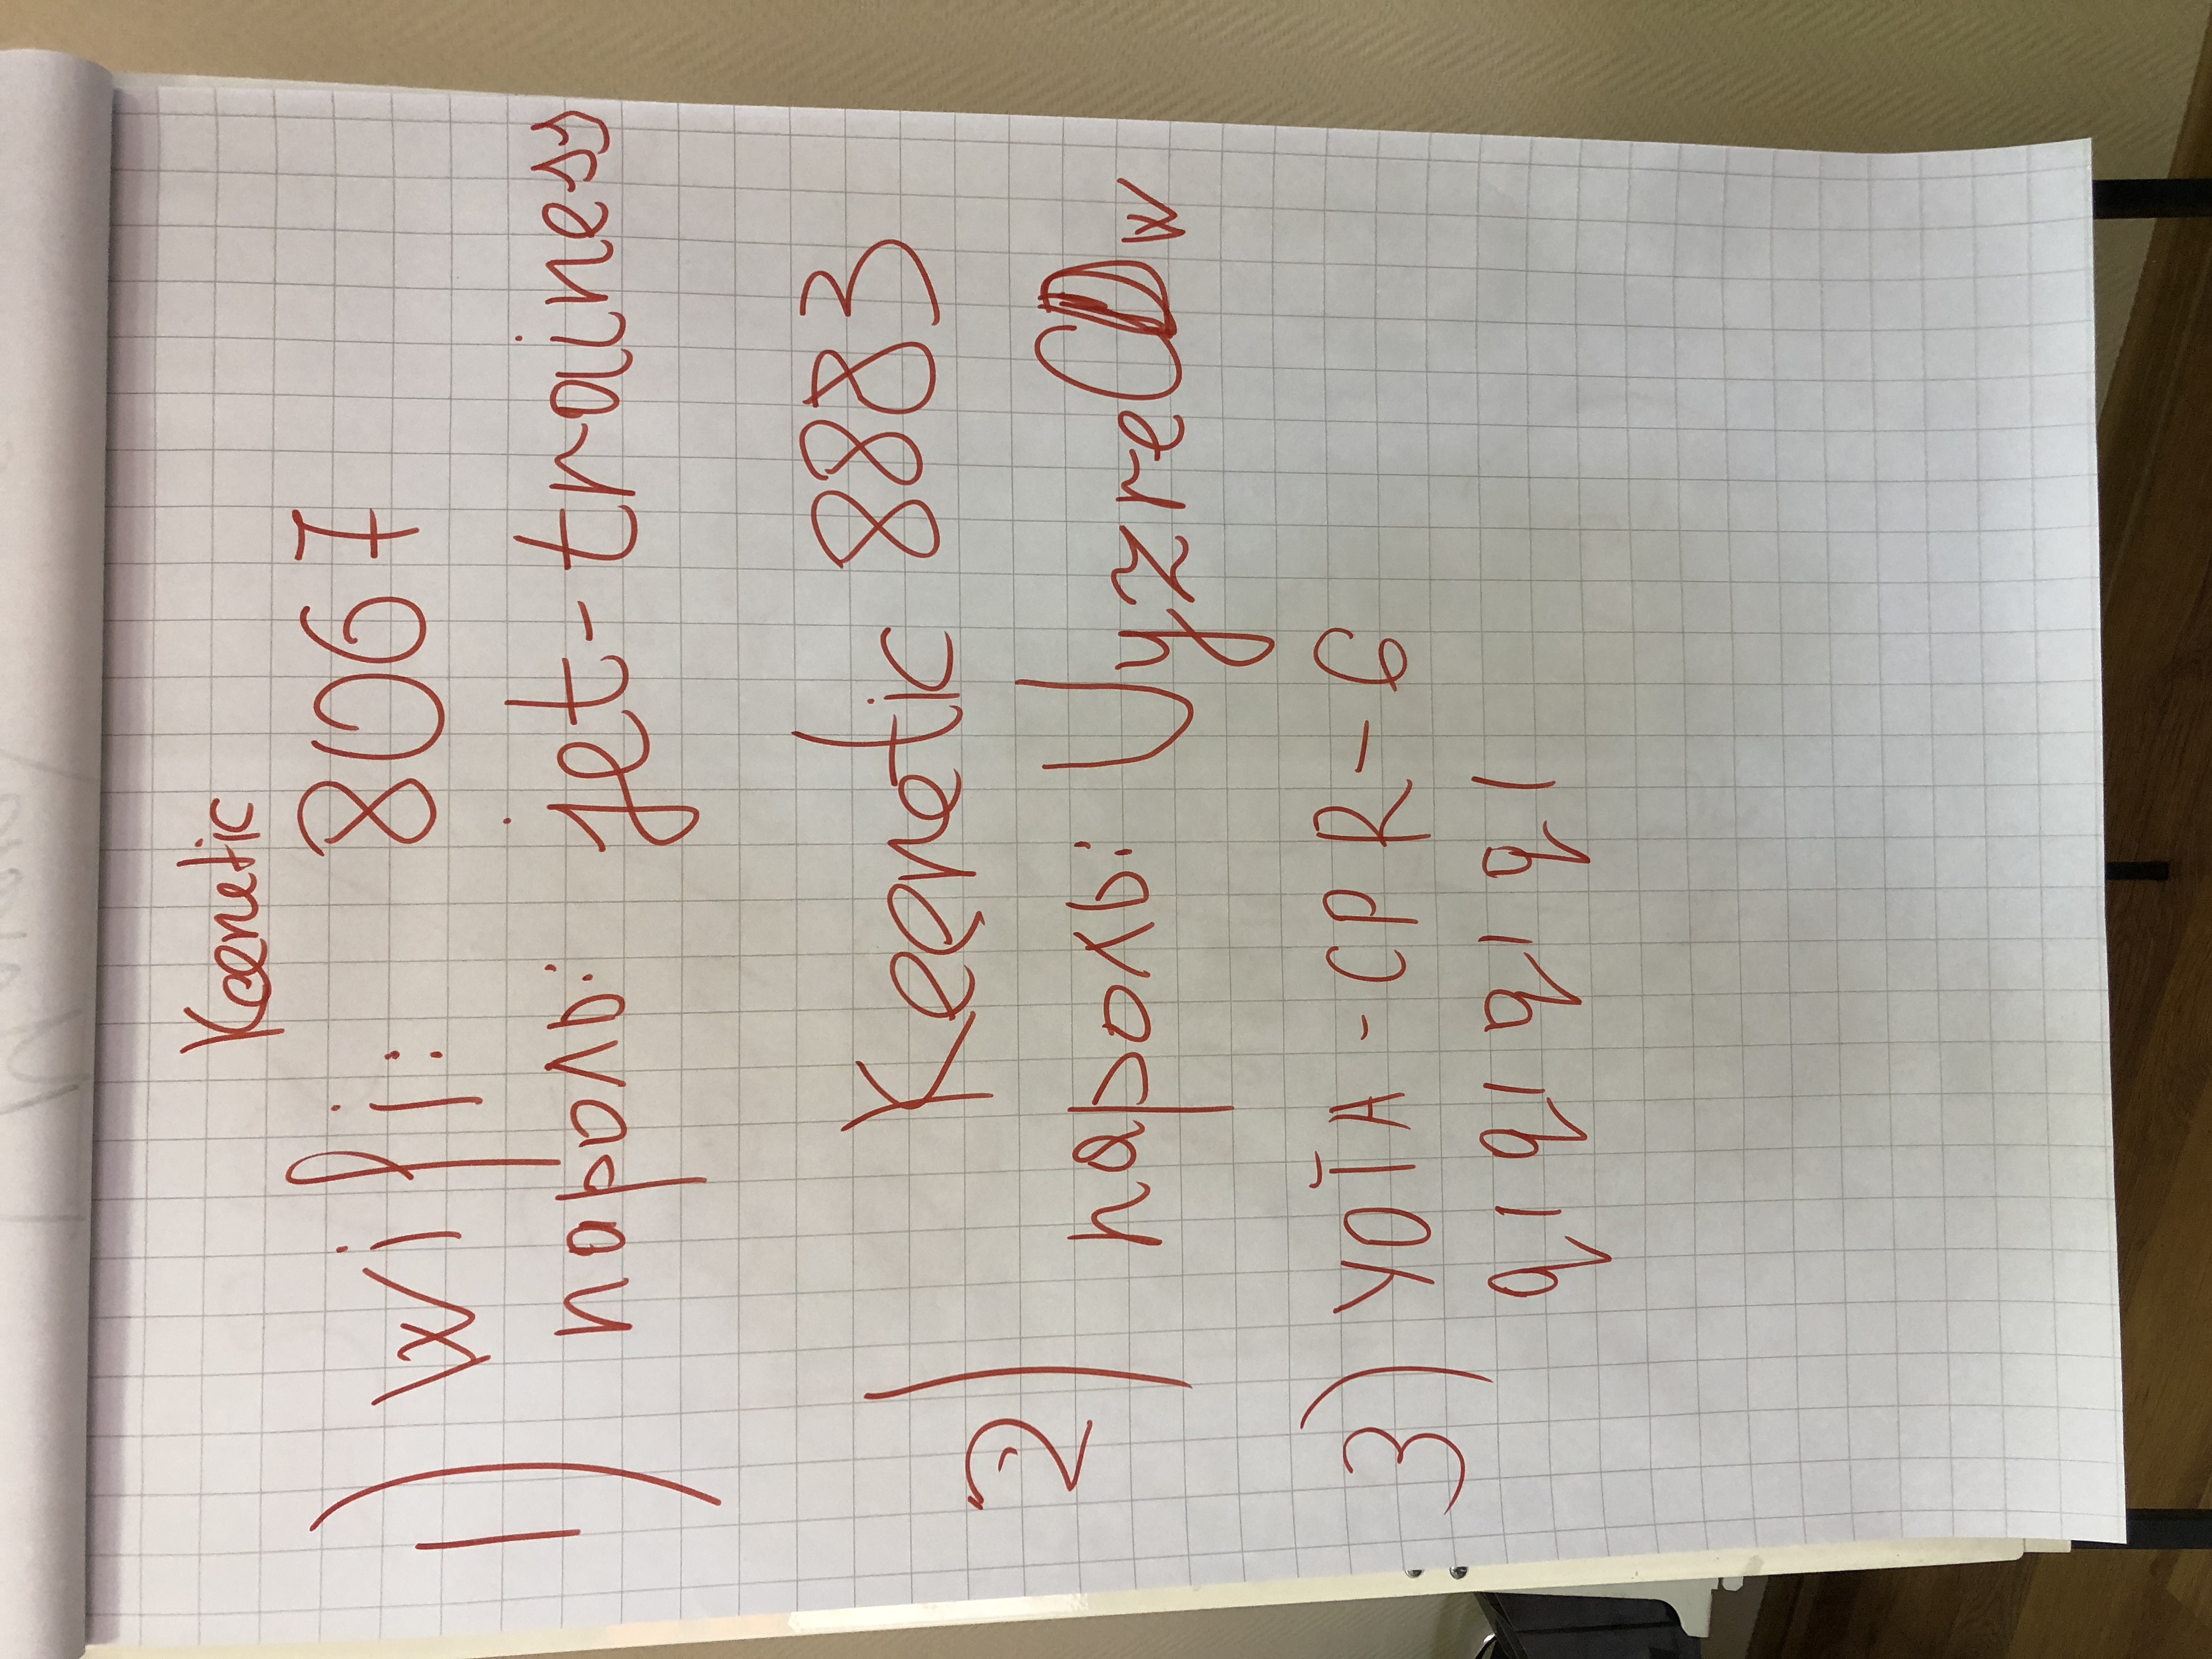 Keenetic
1) wifi: 8067
пароль: jet-trainess
2) Keenetic 8883
пароль: UyzreCDw
3) YOTA-CPR-6
q1q1q1q1